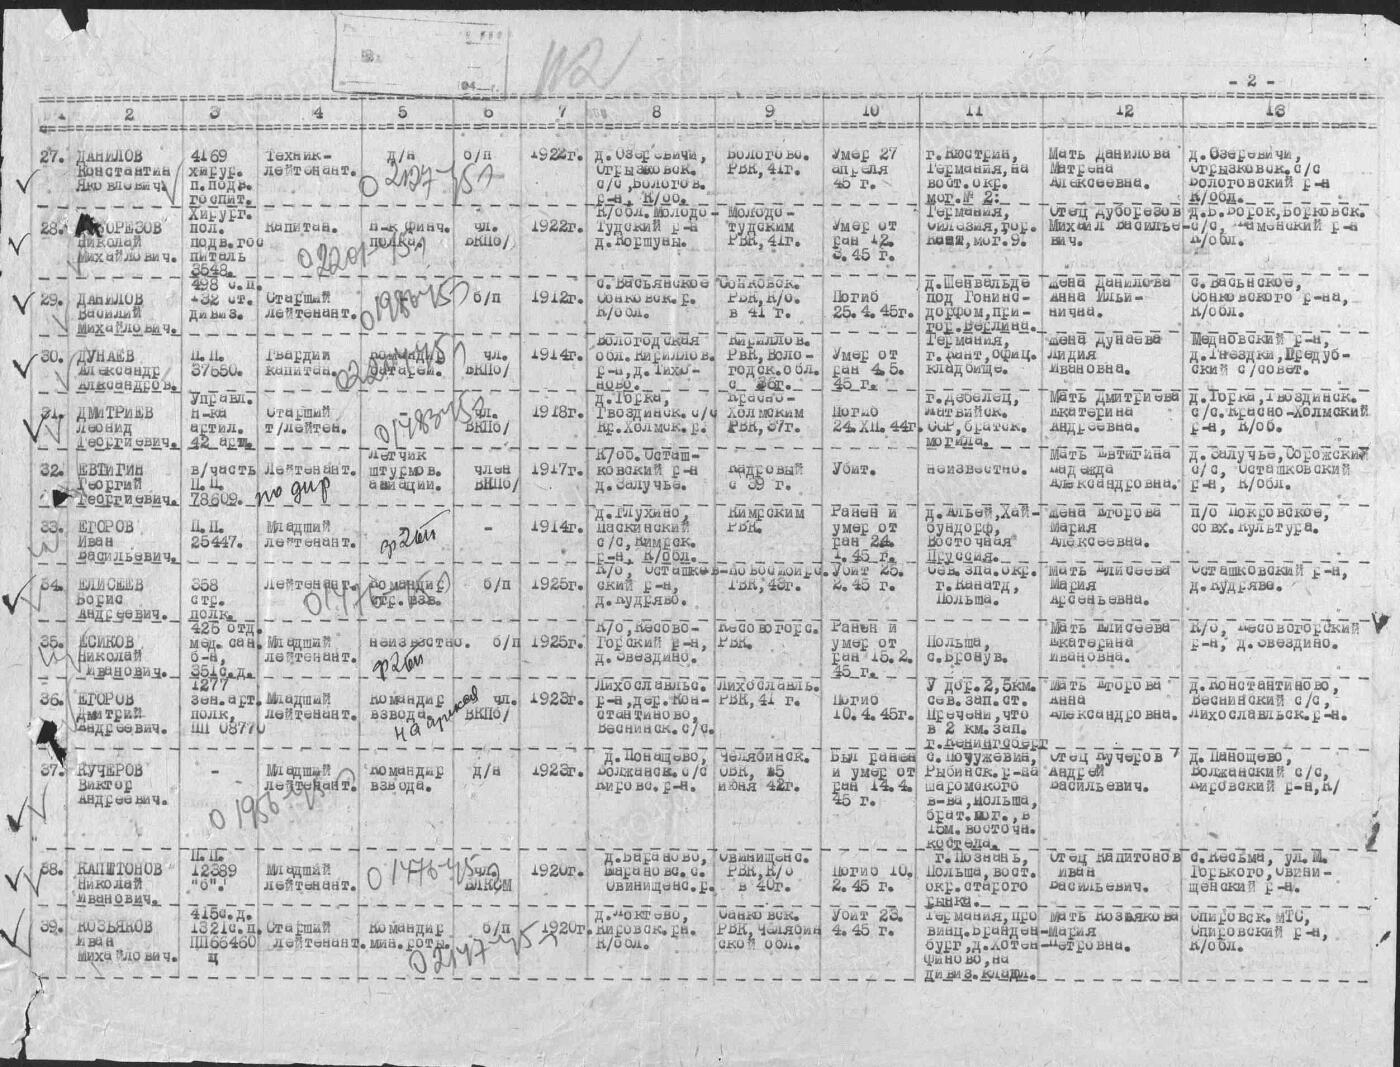 112
- 2 -
1 2 3 4 5 6 7 8 9 10 11 12 13
27. ДАНИЛОВ 4169 Техник- д/н б/п 1922г. д.Озеревичи, Бологово. Умер 27 г.Кюстрин, Мать Данилова д.Озеревичи,
Константин хирур. лейтенант. Отрызковск. РВК,41г. апреля Германия,на Матрена Отрызковск.с/с
Яковлевич. п.подв. 02127-45 с/с,Бологов. 45 г. вост.окр. Алексеевна. Бологовский р-н
госпит. р-н, К/об. мог.№ 2: К/обл.
28. ДУБОРЕЗОВ Хирург. Капитан. н-к финч. чл. 1922г. К/обл.Молодо- Молодо- Умер от Германия, Отец Дуборезов д.Б.Борок,Борковск.
Николай пол. полка. ВКПб/ Тудский р-н тудским ран 12. Силезия,гор. Михаил Василье- с/с, Каменский р-н
Михайлович. подв.гос 02201-45 д.Коршуны. РВК,41г. 3.45 г. мог.9. вич. К/обл.
питаль
3548.
29. ДАНИЛОВ 498 с.п. Старший 01986-45 б/п 1912г. с.Васьянское Сонковск. Погиб д.Шенвальде Жена Данилова с.Васьнское,
Василий 132 ст. лейтенант. Сонковск.р. РВК,К/о. 25.4.45г. под Гонинс- Анна Ильи- Сонковского р-на,
Михайлович. дивиз. К/обл. в 41 г. дорфом,при- нична. К/обл.
гор.Берлина.
30. ДУНАЕВ П.П. Гвардии Командир чл. 1914г. Вологодская Кириллов. Умер от Германия, Жена Дунаева Медновский р-н,
Александр 37550. капитан. батареи. ВКПб/ обл.Кириллов. РВК,Воло- ран 4.5. г.Кант,офиц. Лидия д.Гнездки,Предуб-
Александров. р-н,д.Тихо- годск.обл. 45 г. кладбище. Ивановна. ский с/совет.
ново. с 36г.
31. ДМИТРИЕВ Управл. Старший 01783-45 чл. 1918г. д.Горка, Красно- Погиб г.Дебелец, Мать Дмитриева д.Горка,Гвоздинск.
Леонид н-ка т/лейтен. ВКПб/ Гвоздинск.с/с Холмским 24.XII.44г. Латвийск. Екатерина с/с.Красно-Холмский
Георгиевич. артил. Кр.Холмск.р. РВК,37г. ССР,братск. Андреевна. р-н, К/об.
42 арт. могила.
32. ЕВТИГИН в/часть Лейтенант. Летчик член 1917г. К/об.Осташ- Кадровый Убит. неизвестно. Мать Евтигина д.Залучье,Сорожский
Георгий П.П. штурмов. ВКПб/ ковский р-н с 39 г. Надежда с/с, Осташковский
Георгиевич. 78609. по дир авиации. д.Залучье. Александровна. р-н, К/обл.
33. ЕГОРОВ П.П. Младший - 1914г. д.Глухино, Кимрским Ранен и д.Альей,Хай- Жена Егорова п/о Покровское,
Иван 25447. лейтенант. Паскинский РВК. умер от бундорф, Мария совх.Культура.
Васильевич. с/с,Кимрск. ран 24. Восточная Алексеевна.
р-н, К/обл. 1.45 г. Пруссия.
34. ЕЛИСЕЕВ 358 Лейтенант. Командир б/п 1925г. К/о, Осташков- Новосиоирс. Убит 25. Сев.зпа.окр. Мать Елисеева Осташковский р-н,
Борис стр. стр.взв. ский р-н, ГВК,43г. 2.45 г. г.Канатд, Мария д.Кудряво.
Андреевич. полк. д.Кудряво. Польша. Арсеньевна.
35. ЕСИКОВ 425 отд. Младший неизвестно. б/п 1925г. К/о,Кесово- Кесовогорс. Ранен и Польша, Мать Елисеева К/о, Кесовогорский
Николай мед.сан. лейтенант. Горский р-н, РВК. умер от с.Бронув. Екатерина р-н, д.Звездино.
Иванович. б-н, д.Звездино. ран 15.2. Ивановна.
351с.д. 45 г.
36. ЕГОРОВ 1277 Младший Командир чл. 1923г. Лихославльс. Лихославль. Погиб У дор.2,5км. Мать Егорова д.Константиново,
Дмитрий зен.арт. лейтенант. взвода. ВКПб/ р-н,дер.Кон- РВК,41 г. 10.4.45г. сев.зап.ст. Анна Веснинский с/с,
Андреевич. полк, стантиново, Пречени,что Александровна. Лихославльск.р-н.
ПП 08770 Веснинск.с/с. в 2 км.зап.
г.Кенингсберг
37. КУЧЕРОВ - Младший Командир д/н 1923г. д.Понащево, Челябинск. Был ранен с.Почужевин, Отец Кучеров д.Панощево,
Виктор лейтенант. взвода. Волжанск.с/с ОВК, и умер от Рыбинск.р-на Андрей Волжанский с/с,
Андреевич. 01956-45 Кировс.р-н. июня 42г. ран 14.4. шаромского Васильевич. Кировский р-н,К/
45 г. в-ва,Польша,
брат.мог.,в
15м.восточн.
костела.
38. КАПИТОНОВ П.П. Младший 01476-45 чл. 1920г. д.Бараново, Овинищенс. Погиб 10. г.Познань, Отец Капитонов с.Кесьма, ул.М.
Николай 12389 лейтенант. ВЛКСМ Барановс.с. РВК,К/о 2.45 г. Польша,вост. Иван Горького,Овини-
Иванович. "б". Овинищенс.р. в 40г. окр.старого Васильевич. щенский р-н.
рынка.
39. КОЗЬЯКОВ 415с.д. Старший Командир б/п 1920г. д.Локтево, Санковск. Убит 23. Германия,про Мать Козьякова Спировск.МТС,
Иван 1321с.п. лейтенант. мин.роты. Кировск.рн. РВК,Челябин 4.45 г. винц.Бранден- Мария Спировский р-н,
Михайлович. ПП66460 02147-45 К/обл. ской обл. бург,д.Хотен- Петровна. К/обл.
щ финово,на
дивиз.кладл.